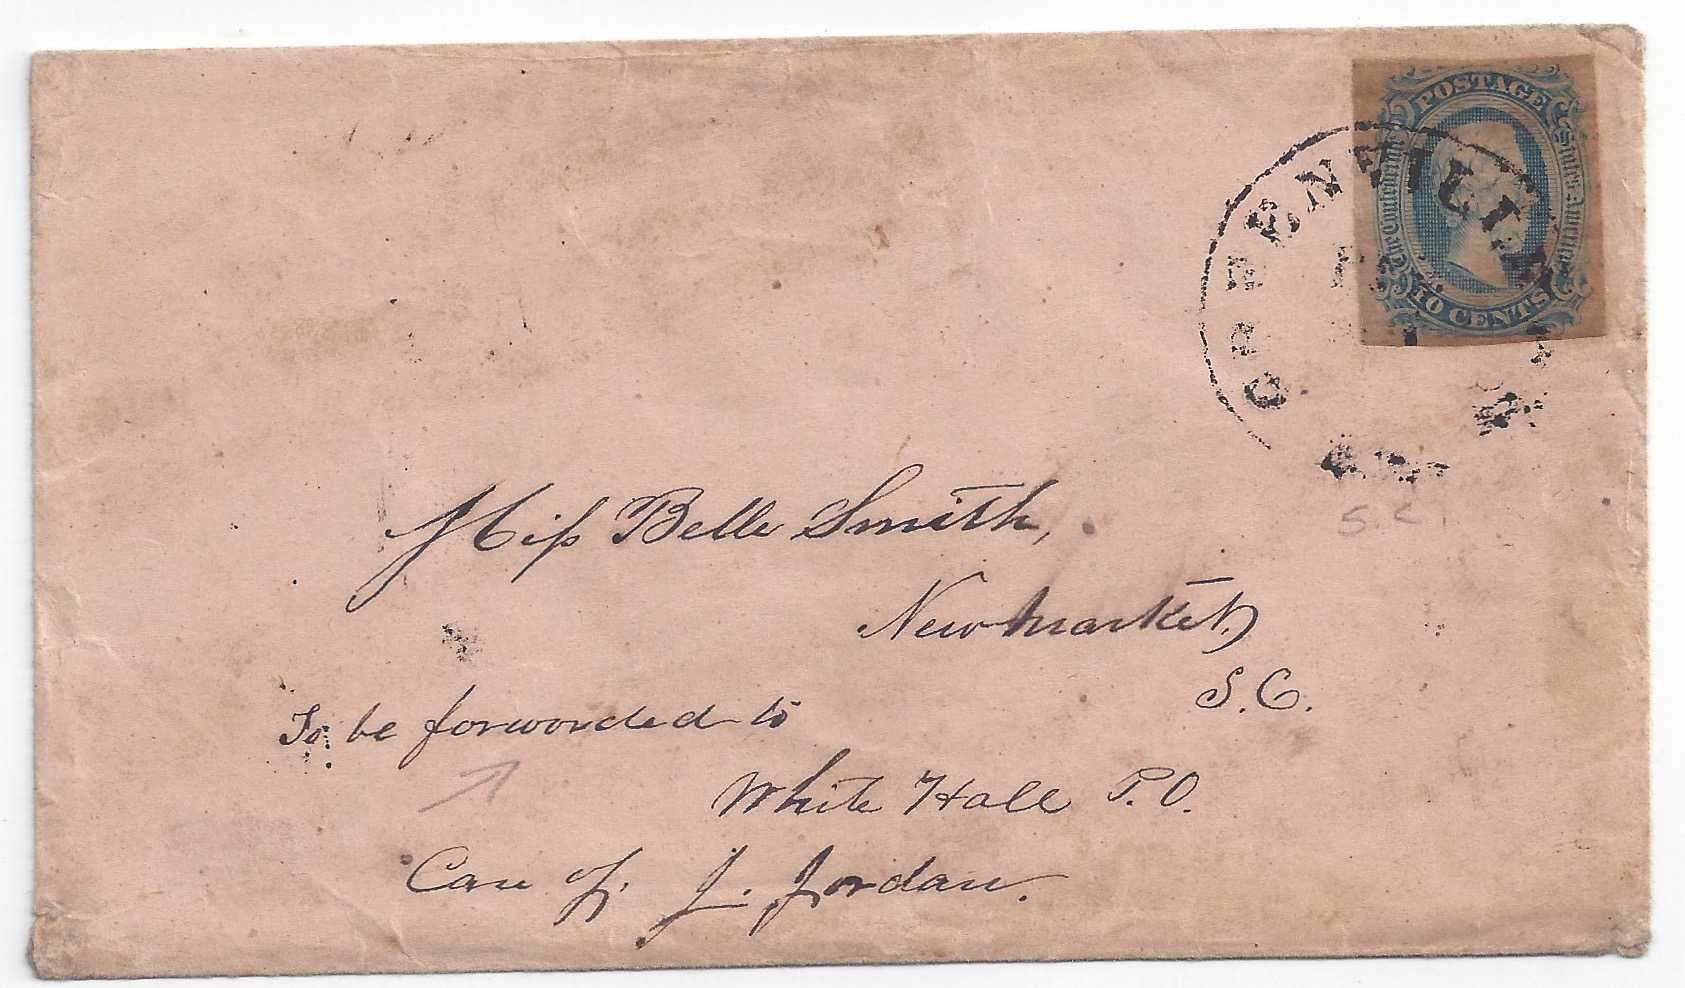 POSTAGE
The Confederate States of America
10 CENTS
GREENVILLE
S.C.
Miss Belle Smith,
Newmarket,
S.C.
To be forworded to
White Hall P.O.
Care of. J. Jordan.